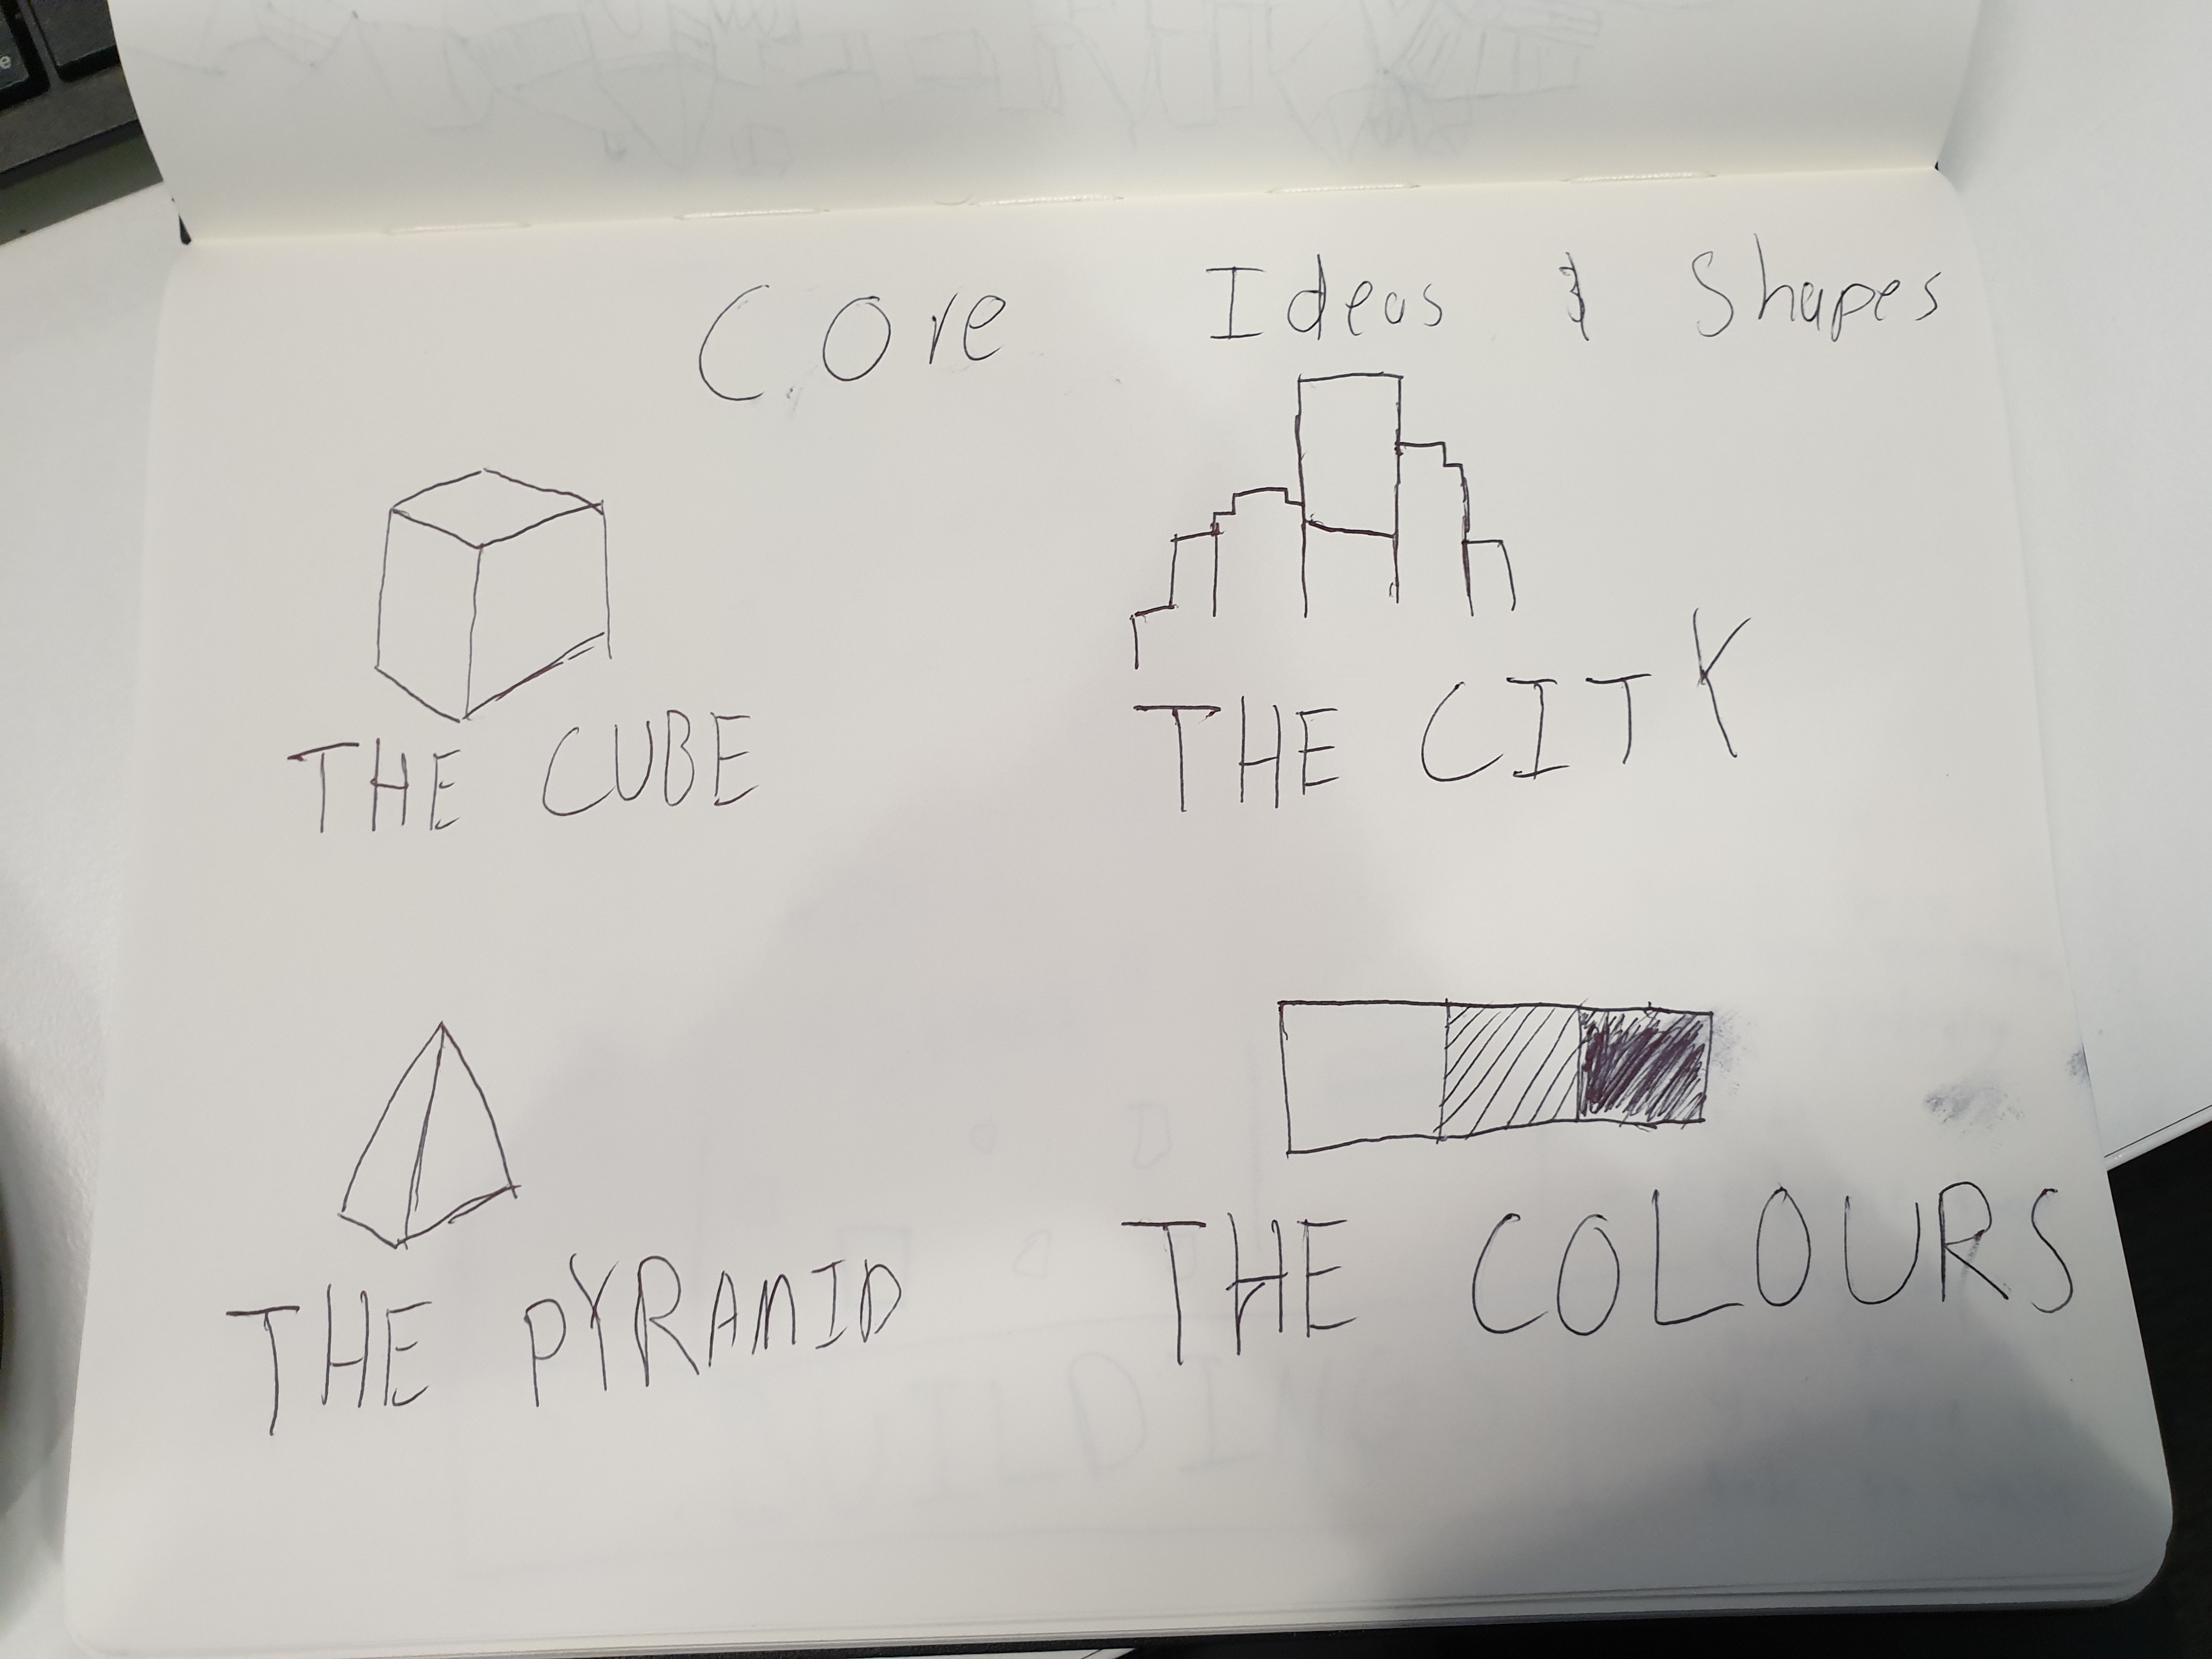 Core Ideas & Shapes
THE CUBE
THE CITY
THE PYRAMID
THE COLOURS